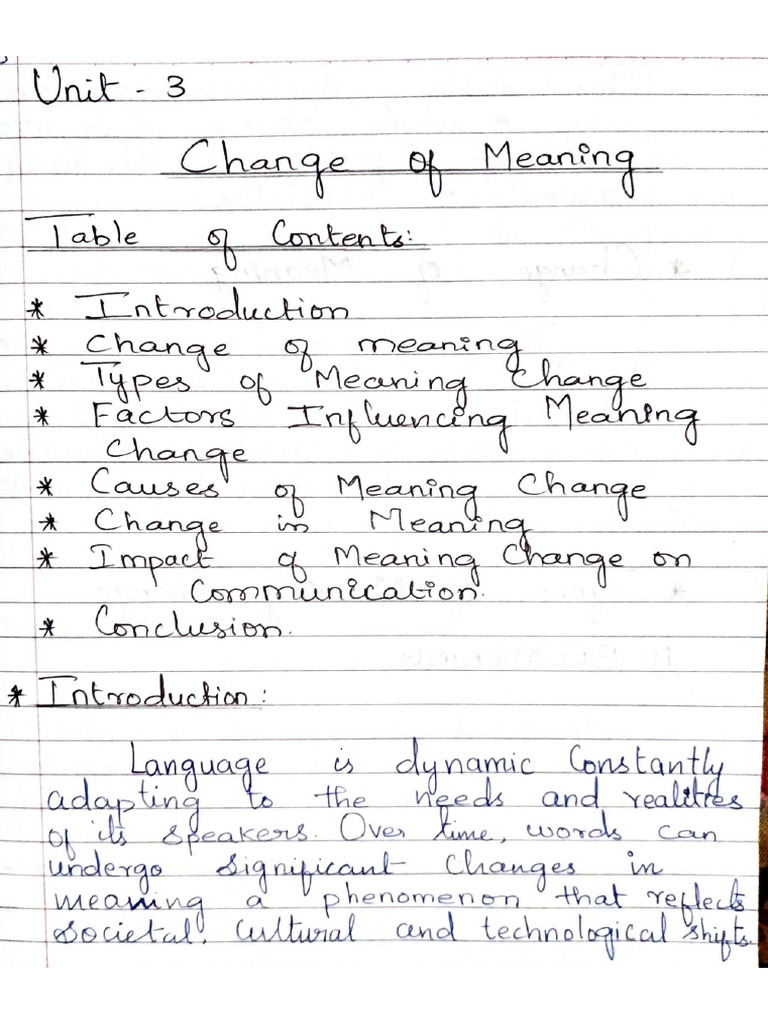 Unit - 3
Change of Meaning
Table of Contents:
* Introduction
* Change of meaning
* Types of Meaning Change
* Factors Influencing Meaning
Change
* Causes of Meaning Change
* Change in Meaning
* Impact of Meaning Change on
Communication.
* Conclusion.
* Introduction:
Language is dynamic Constantly
adapting to the needs and realities
of its speakers. Over time, words can
undergo significant changes in
meaning a phenomenon that reflects
societal, cultural and technological shifts.